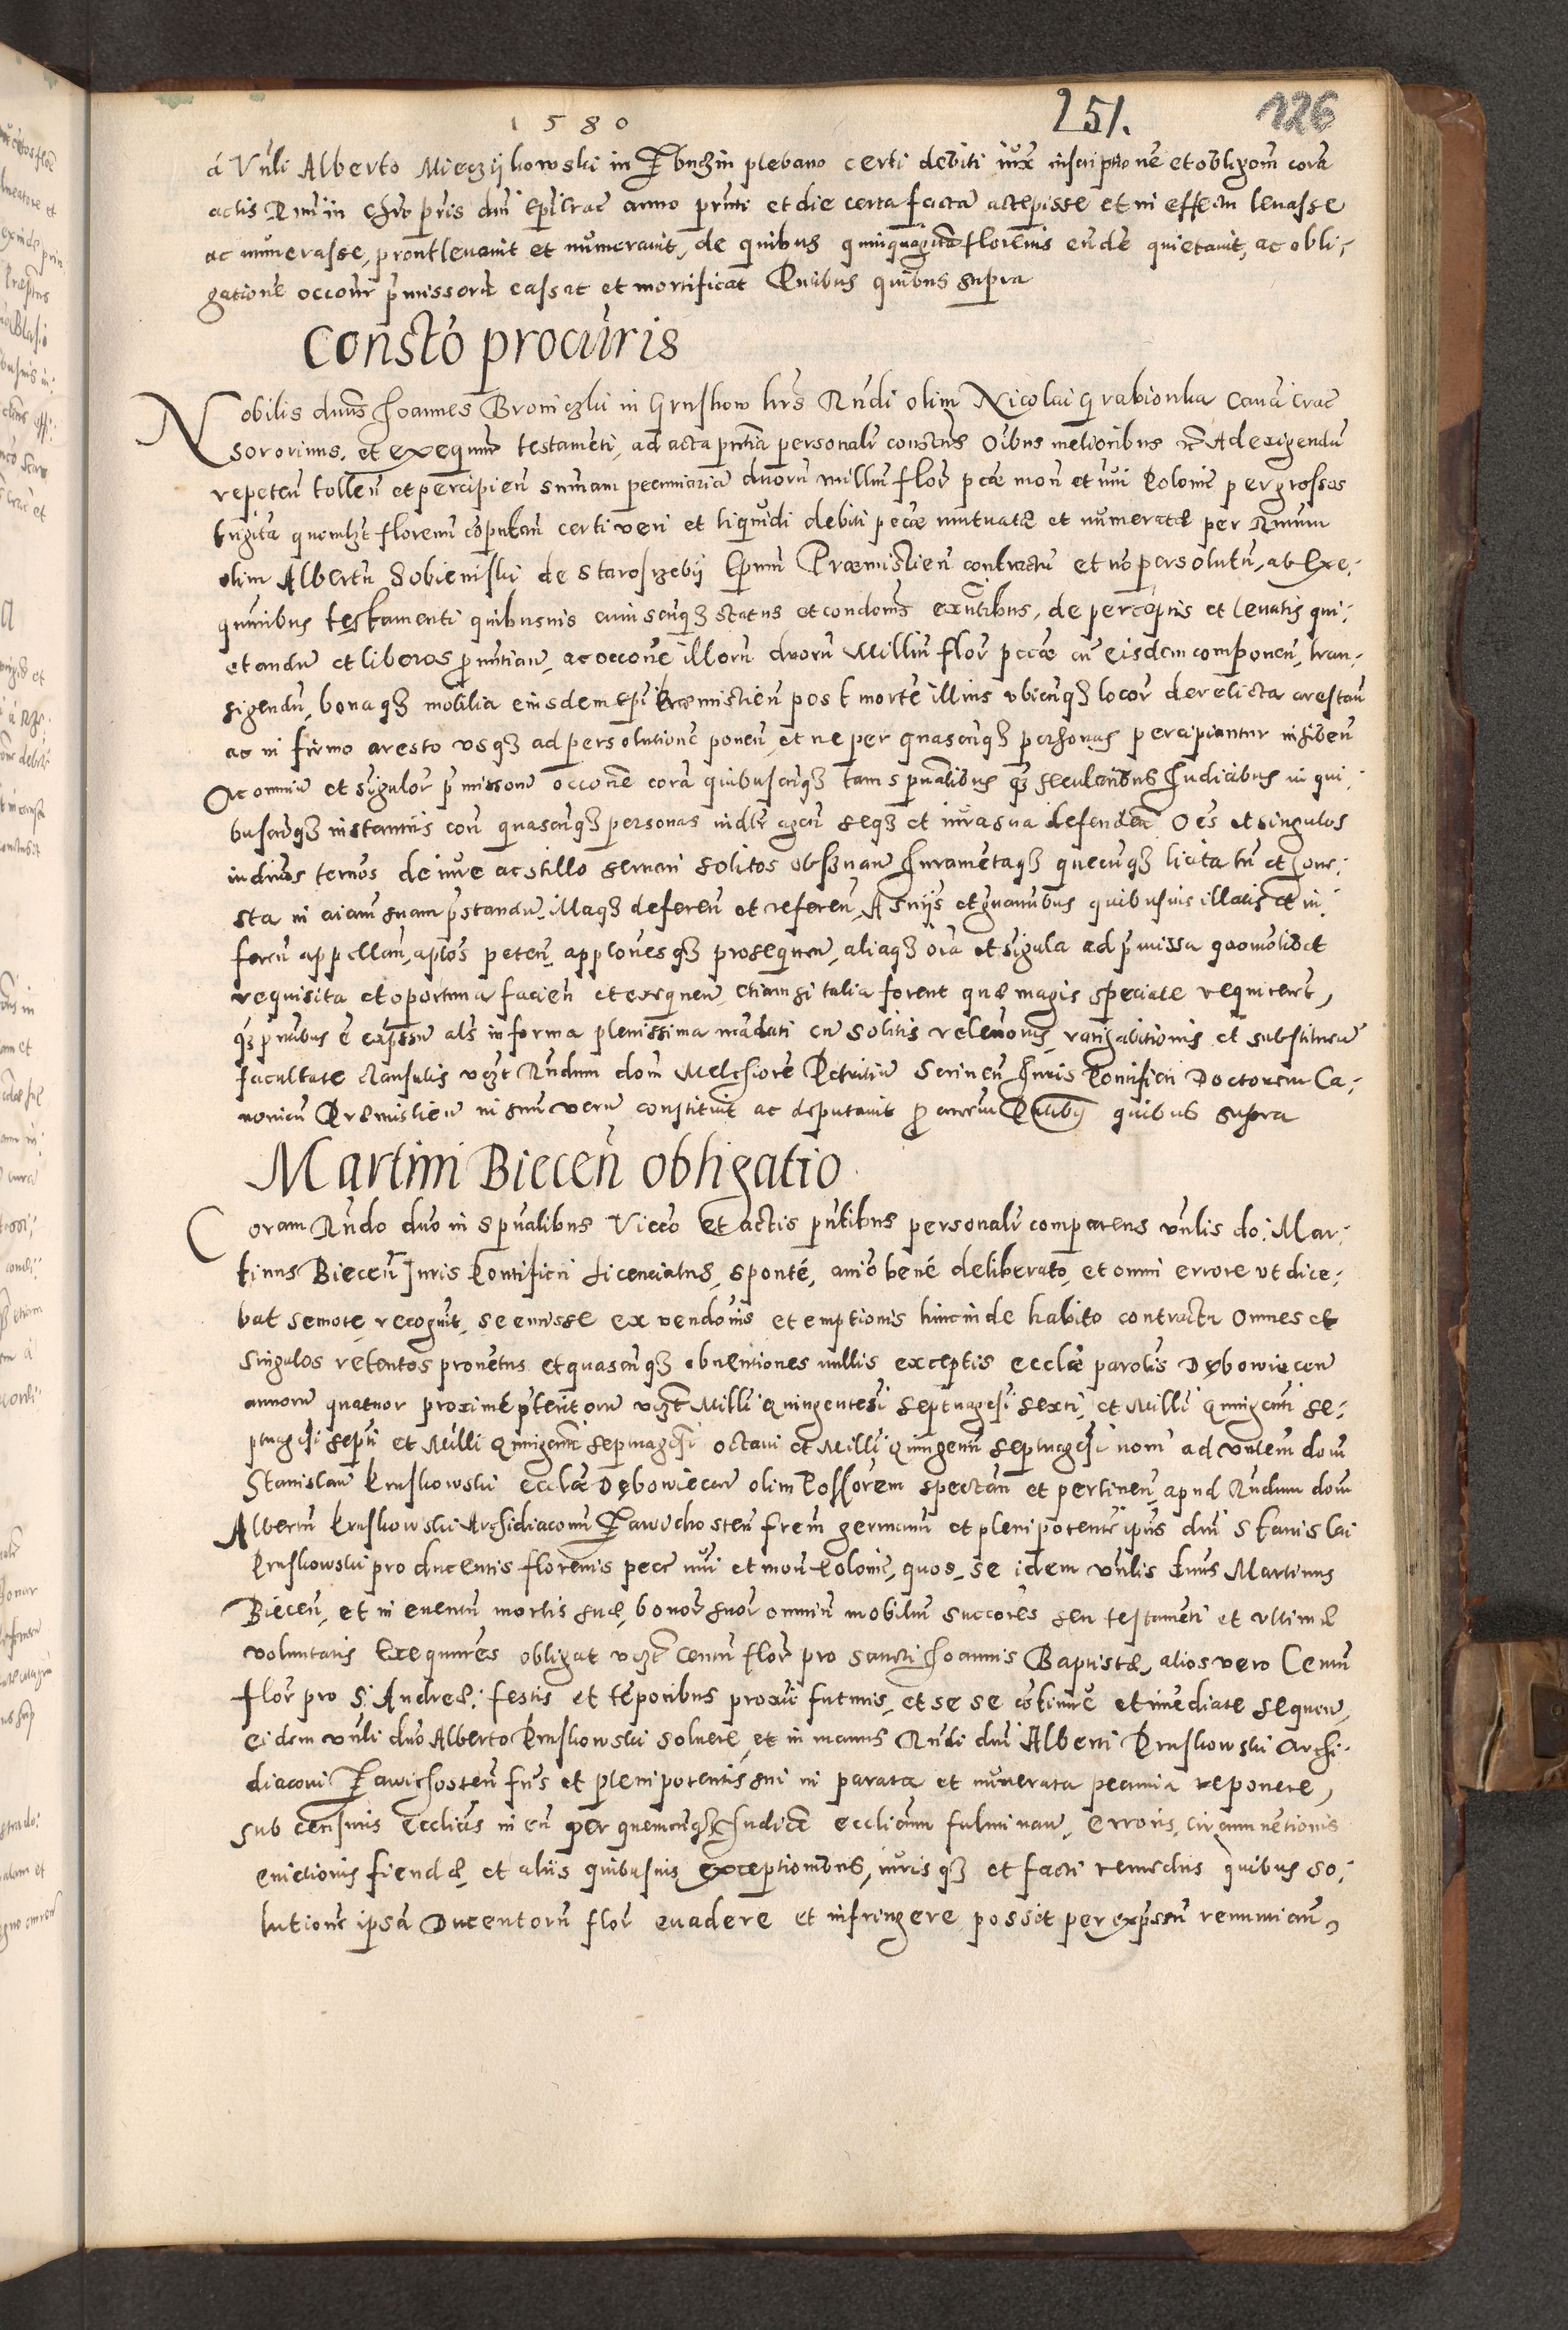 1580
251.
126
á Vnli Alberto Mieczijkowski in Zbuczin plebano certi debiti iux inscriptione et obligom cora
actis Rmi in chro pris dni Epi Crac anno prnti et die certa facta accepisse et in effectu levasse
ac numerasse, prout levavit et numeravit, de quibus quinquaginta florenis eunde quietavit, ac obli;
gatione occone pmissoru cassat et mortificat Pntibus quibus supra
Consto procuris
Nobilis dnus Joannes Broniczki in Gruskow hrs Rndi olim Nicolai Grabionka Cano Crac
sororinus, et exequutor testamenti, ad acta pntia personalr constens Oibus melioribus Ad exigendu
repeten tollen et percipien summam pecuniaria duoru milliu flor pcae mon et nui Polonic per grossos
trigita quemlzt florenu coputan certi veri et liquidi debiti pecae mutuatae et numeratae per Rmum
olim Albertu Sobieniski de Starosrzebij Epum Præmislien contractu et no persolutu, ab Exe;
quutribus testamenti quibusuis cuiuscuqz status et condonis exntibus, de perceptis et levatis qui;
etandu et liberos pnutian, ac occone illoru duoru Milliu flor pecae cu eisdem componen, tran;
sigendu, bonaqz mobilia eiusdem Epi Præmislien post morte illius vbicuqz locor derelicta arestan
ac in firmo aresto vsqz ad persolutione ponen, et ne per quascuqz personas percipiantur inhiben
Ac omniu et sigulor pmissoru occone cora quibuscuqz tam spualibus qz secularibus Judicibus in qui;
buscuqz instantiis con quascuqz personas indir agen seqz et iura sua defenden Oes et singulos
iudrios ternos de iure ac stillo servari solitos obseruan Juramentaqz quecuqz licita tn et hone;
sta in aiam suam pstandu, illaqz deferen et referen, A sniis et gravibus quibusuis illatis et in;
feren appellan, aplos peten, applonesqz prosequen, aliaqz oia et sigula ad pmissa quomolibet
requisita et oportuna facien et exequen, etiamsi talia forent quæ magis speciale requirent,
qz pntibus e expssu als in forma plenissima madati cu solitis releuonis, ratihabitionis et substituen
facultate clausulis vczt Rndum dom Melchiore Petritiu Serinen Juris Pontificii Doctorem Ca;
nonicu Premislien in suu veru constituit ac deputavit Pntibus quibus supra
Martini Biecen obligatio
Coram Rndo dno in spualibus Vicco et actis pntibus personalr comparens vnlis do: Mar;
tinus Biecen Juris Pontificii Licenciatus, sponté, anio bené deliberato, et omni errore vt dice;
bat semote, recognit, se emisse ex vendonis et emptionis hincinde habito contractu Omnes et
singulos retentos prouetus et quascuqz obuentiones nullis exceptis ecclæ parolis Dębowiecen
annoru quatuor proxime pteritoru vczt Milli Quingentesi Septuagesi Sexti, et Milli Quingenti Se;
ptuagesi septi et Milli Quingenti Septuagesi octaui et Milli Quingenti Septuagesi noni ad vnlem dom
Stanislau Kruskowski ecclæ Dębowiecen olim Possorem spectan et pertinen, apud Rndum dom
Albertu Kruskowski Archidiaconu Zawichosten frem germanu et plenipotente ipius dni Stanislai
Kruskowski pro ducentis florenis pecæ nui et mon Polonic, quos, se idem vnlis dnus Martinus
Biecen, et in euentu mortis suæ, bonor suor omniu mobiliu succores seu testamenti et vltimæ
voluntatis Exequutores obligat vczt Centu flor pro Sancti Joannis Baptistæ, alios vero Centu
flor pro S. Andreæ: festis et teporibus proxi futuris, et se se cotinue et imediate sequen,
eidem vnli dno Alberto Kruskowski soluere, et in manus Rndi dni Alberti Kruskowski Archi;
diaconi Zawichosten fris et plenipotentis sui in parata et numerata pecunia reponere,
sub censuris ecclicis in eu per quemcuqz Judice ecclicum fulminan, erroris, circumuentionis
euictionis fiendæ, et aliis quibusuis exceptionibus, iurisqz et facti remediis quibus so;
lutione ipsa Ducentoru flor euadere et infringere possit per expssu renuncian,